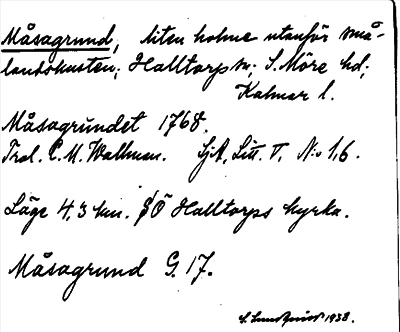 Måsagrund, liten holme utanför små-
landskusten; Halltorp sn; S. Möre hd;
Kalmar l.
Måsagrundet 1768.
Trol. C. M. Wallman. SjA, Litt. V, No 1,6.
Läge 4,3 km. SÖ Halltorps kyrka.
Måsagrund G. 17.
S. Lundquist 1938.